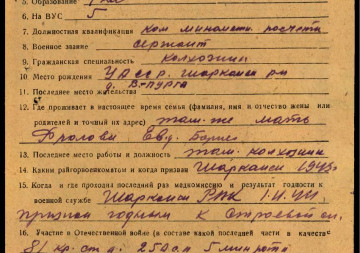 5. Образование
6. На ВУС 5
7. Должностная квалификация ком. минометн. расчета
8. Военное звание сержант
9. Гражданская специальность колхозник
10. Место рождения УАССР. Шарканский р-н
11. Последнее место жительства д. В-Пурга
12. Где проживает в настоящее время семья (фамилия, имя и отчество жены или
родителей и точный их адрес) там-же мать
Фролова Евд.
13. Последнее место работы и должность там. колхозник
14. Каким райгорвоенкоматом и когда призван Шарканский 1943г
15. Когда и где проходил последний раз медкомиссию и результат годности к
военной службе Шаркански РВК
признан годным к строевой сл.
16. Участие в Отечественной войне (в составе какой последней части в качестве
5 минрота